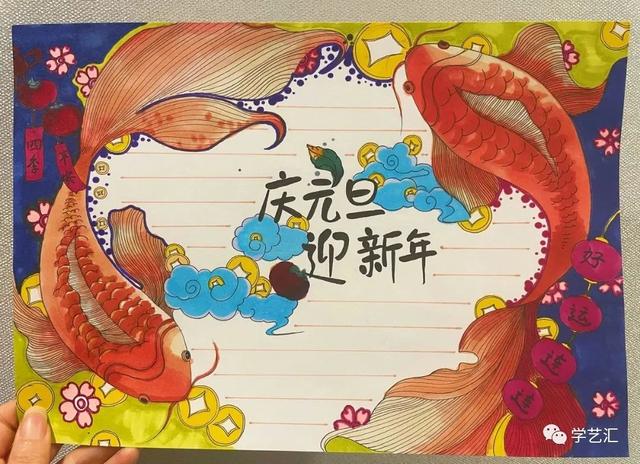 庆元旦
迎新年
四季
平安
好
运
连
连
学艺汇